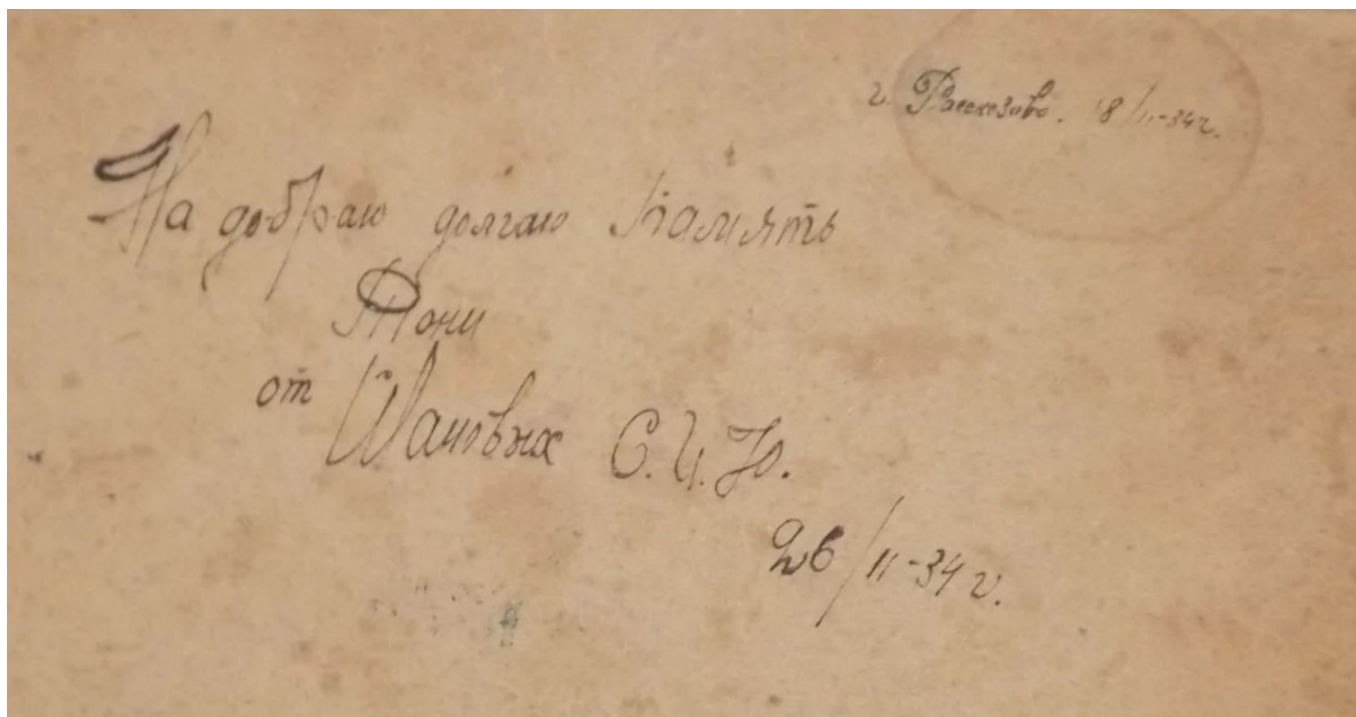 г. Рассказово. 18/11-34г.
На добраю долгаю память
Тони
от С. И. Ю.
26/11-34 г.